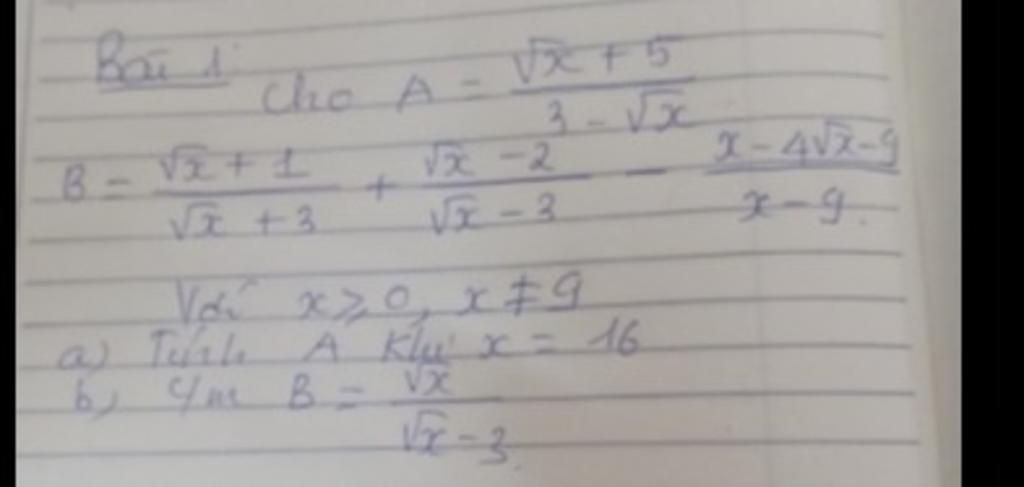 Bài 1
Cho A = (√x + 5)/(3 - √x)
B = (√x + 1)/(√x + 3) + (√x - 2)/(√x - 3) - (x - 4√x - 9)/(x - 9)
Với x ≥ 0, x ≠ 9
a) Tính A khi x = 16
b, c/m B = √x/(√x - 3)